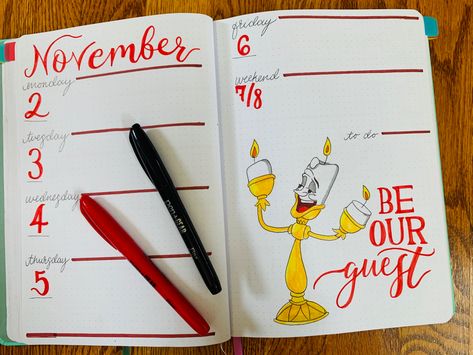 November
monday
2
tuesday
3
wednesday
4
thursday
5
friday
6
weekend
7/8
to do
BE
OUR
guest